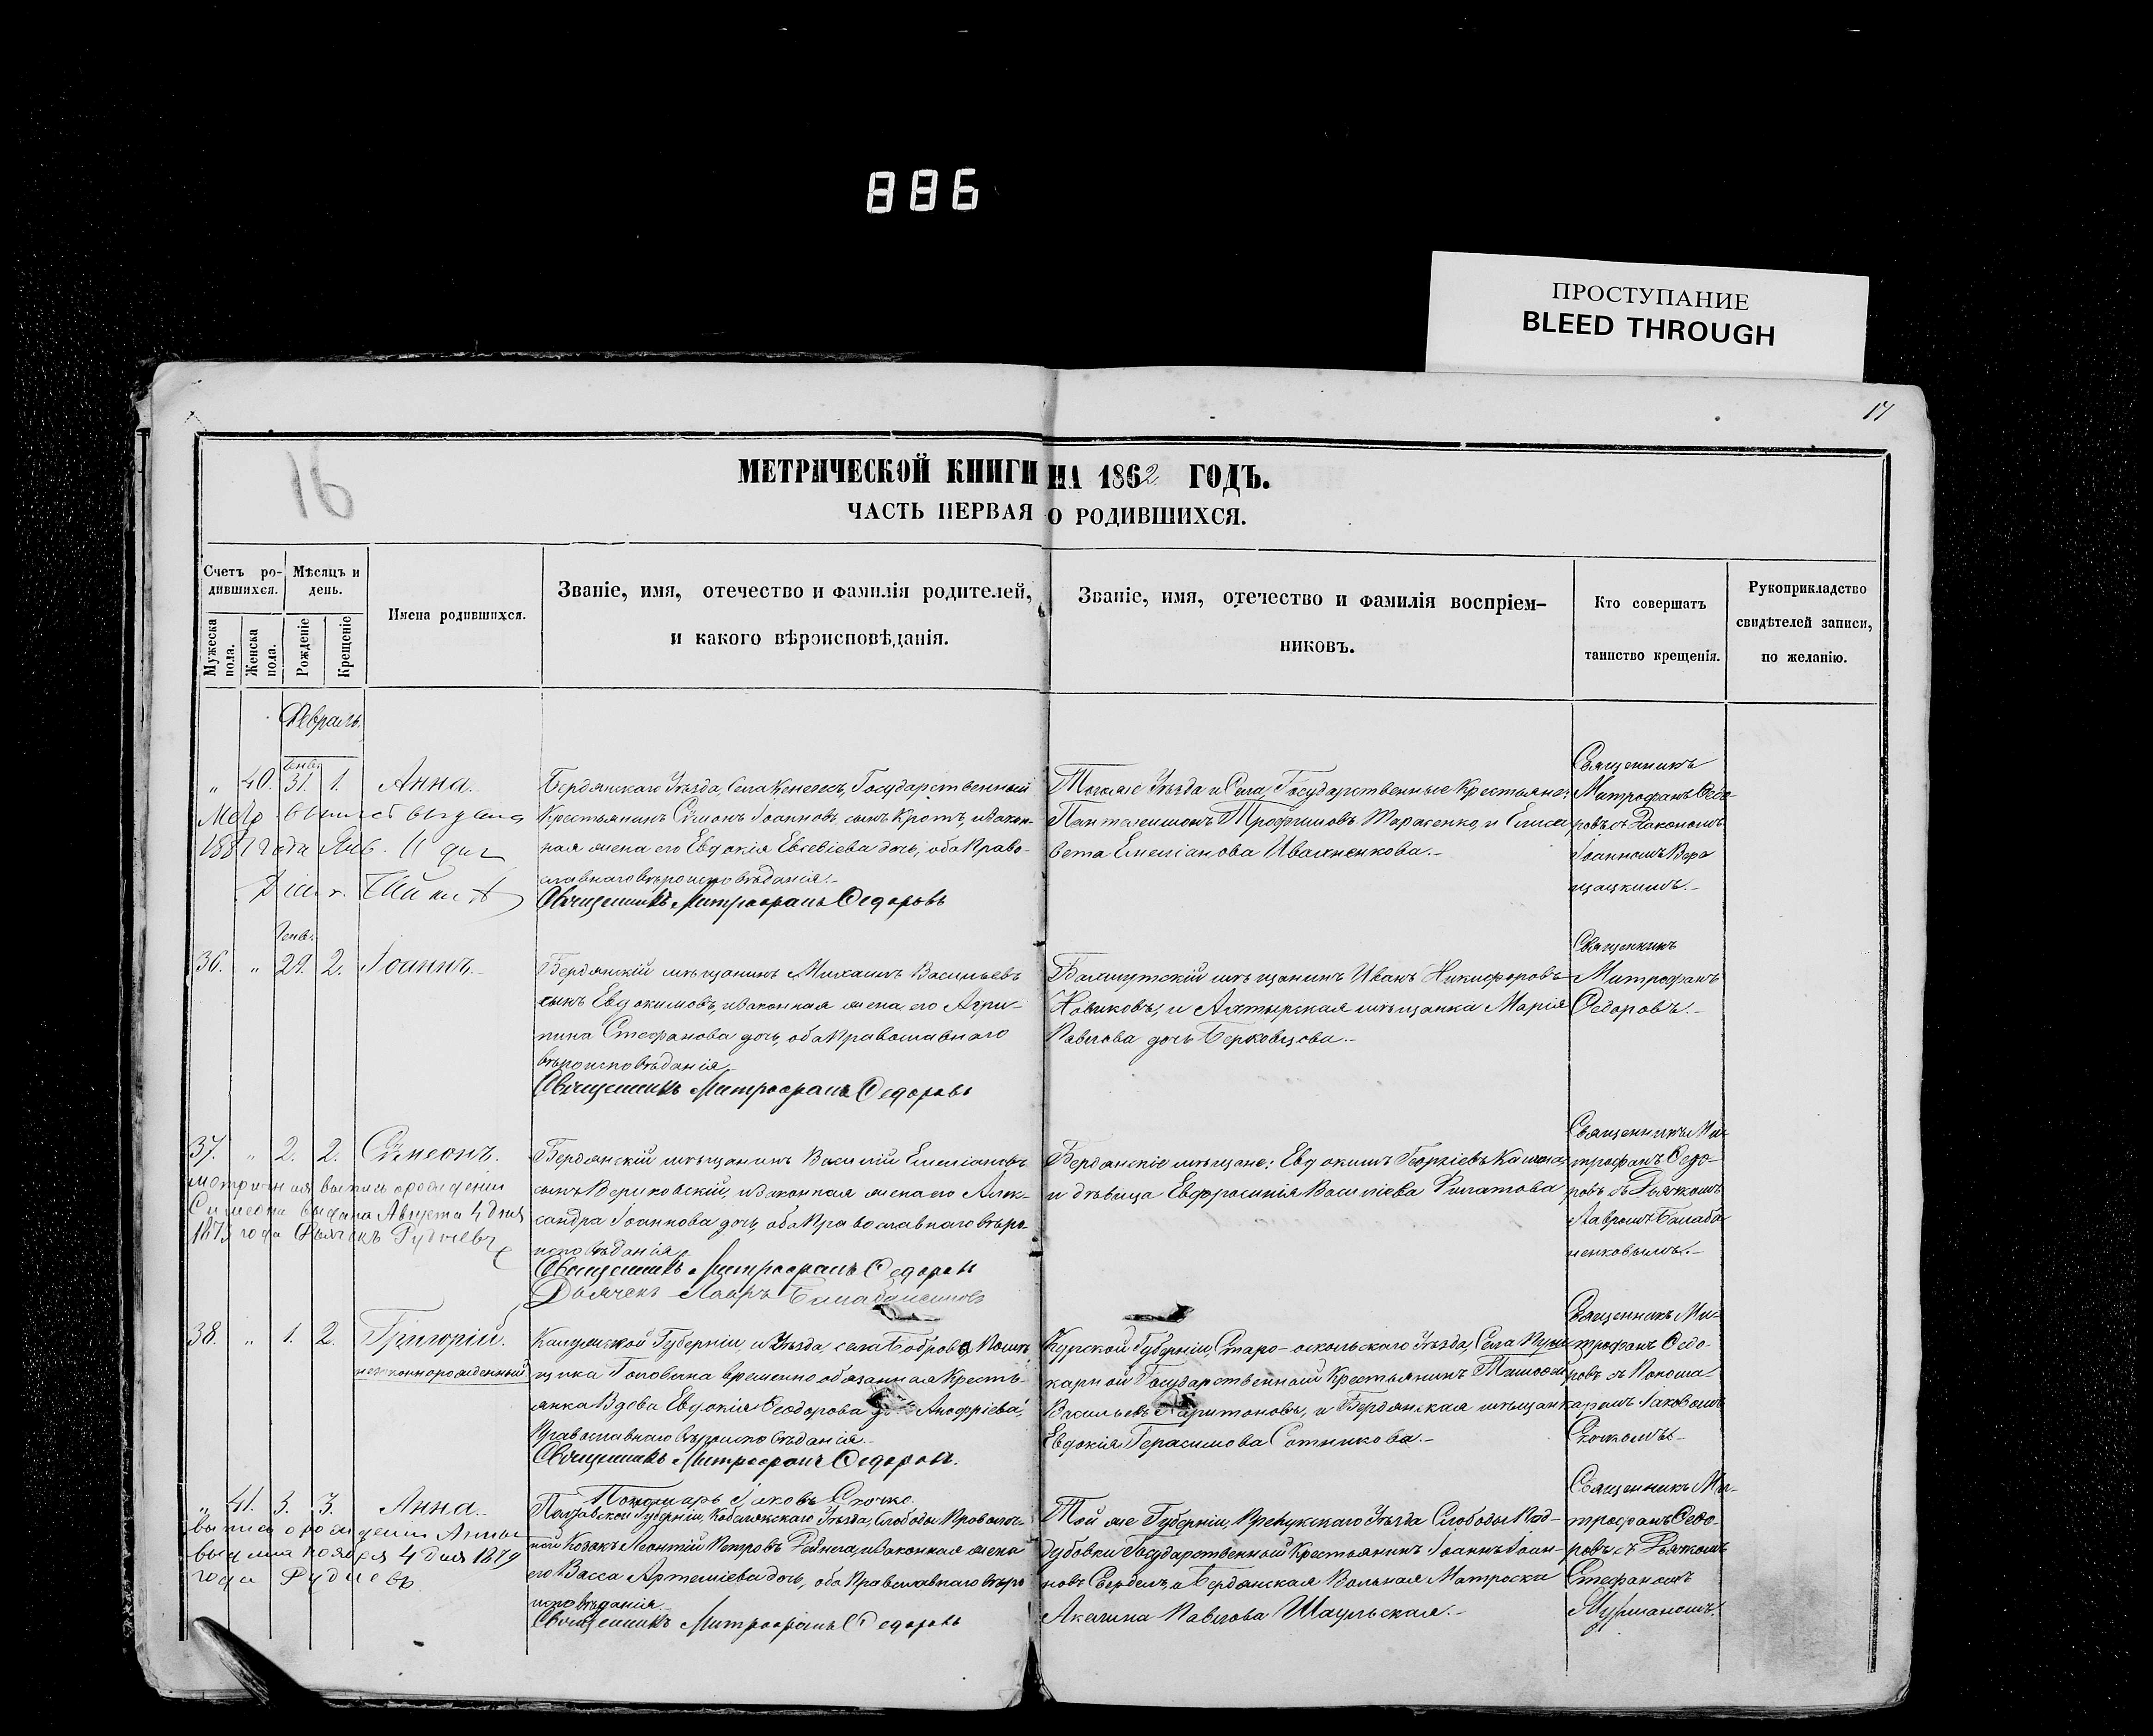 886
ПРОСТУПАНИЕ
BLEED THROUGH
17
16
МЕТРИЧЕСКОЙ КНИГИ НА 1862 ГОДЪ.
ЧАСТЬ ПЕРВАЯ О РОДИВШИХСЯ.
Счетъ ро-
дившихся.
Мѣсяцъ и
день.
Мужеска
пола.
Женска
пола.
Рожденіе
Крещеніе
Имена родившихся.
Званіе, имя, отечество и фамилія родителей,
и какого вѣроисповѣданія.
Званіе, имя, отечество и фамилія воспріем-
никовъ.
Кто совершатъ
таинство крещенія.
Рукоприкладство
свидѣтелей записи,
по желанію.
Февраль.
Генв.
„ 40. 31. 1. Анна.
выпись выдана
1881 года Янв. 11 дня
Бердянскаго Уѣзда, Села Государственный
Крестьянинъ Сѵмонъ Іоанновъ сынъ Кротъ, и закон-
ная жена его Евдокія Евсевіева дочь, оба Право-
славнаго вѣроисповѣданія.-
Священникъ Митрофанъ Ѳедоровъ
Тогоже Уѣзда и Села, Государственные Крестьяне:
Пантелеимонъ Трофимовъ Тарасенко, и Елиса
вета Емеліанова Ивахненкова.-
Священникъ
Митрофанъ Ѳедо-
ровъ съ Діакономъ
Іоанномъ Вере
щацкимъ.-
Генв.
36. „ 29. 2. Іоаннъ.
Бердянскій мѣщанинъ Михаилъ Васильевъ
сынъ Евдокимовъ, и законная жена его Агри-
пина Стефанова дочь, оба Православнаго
вѣроисповѣданія.-
Священникъ Митрофанъ Ѳедоровъ
Бахмутскій мѣщанинъ Иванъ Никифоровъ
Новиковъ, и Ахтырская мѣщанка Марія
Павлова дочь Берковцова.-
Священникъ
Митрофанъ
Ѳедоровъ.-
37. „ 2. 2. Сѵмеонъ.
метричная выпись о рождении
Симеона выдана Августа 4 дня
1873 года Дьячекъ Рудневъ
Бердянскій мѣщанинъ Василій Емеліановъ
сынъ Вериковскій, и законная жена его Алек-
сандра Іоаннова дочь, оба Православнаго вѣро-
исповѣданія.-
Священникъ Митрофанъ Ѳедоровъ
Дьячекъ Лавръ Балабаненковъ
Бердянскіе мѣщане: Евдокимъ Георгіевъ
и дѣвица Евфросинія Василіева Филатова
Священникъ Ми-
трофанъ Ѳедо-
ровъ съ Дьячкомъ
Лавромъ Балаба-
ненковымъ.-
38. „ 1. 2. Григорій.
незаконнорожденный
Калужской Губерніи, и Уѣзда, села Боброва Помѣ
щика Головина временно обязанная Кресть-
янка Вдова Евдокія Ѳеодорова Анофріева,
Православнаго вѣроисповѣданія.-
Священникъ Митрофанъ Ѳедоровъ.
Пономарь Іаковъ Скочко.
Курской Губерніи, Старо-оскольскаго Уѣзда, Села
Государственный Крестьянинъ Тимофей
Васильевъ Харитоновъ, и Бердянская мѣщанка
Евдокія Герасимова Сотникова.-
Священникъ Ми-
трофанъ Ѳедо-
ровъ съ Понома-
ремъ Іаковомъ
Скочкомъ.-
„ 41. 3. 3. Анна.
выпись о рождении Анны
выдана ноября 4 дня 1879
года Рудневъ
Полтавской Губерніи, Кобелякскаго Уѣзда, Слободы
Козакъ Леонтій Петровъ и законная жена
его Васса Артеміева дочь, оба Православнаго вѣро
исповѣданія.-
Священникъ Митрофанъ Ѳедоровъ
Той же Губерніи, Уѣзда Слободы
Государственный Крестьянинъ Іоаннъ Іоан-
новъ и Бердянская Вольная Матроска
Акилина Павлова Шаульская.-
Священникъ Ми-
трофанъ Ѳедо-
ровъ съ Дьячкомъ
Стефаномъ
Мурманомъ.